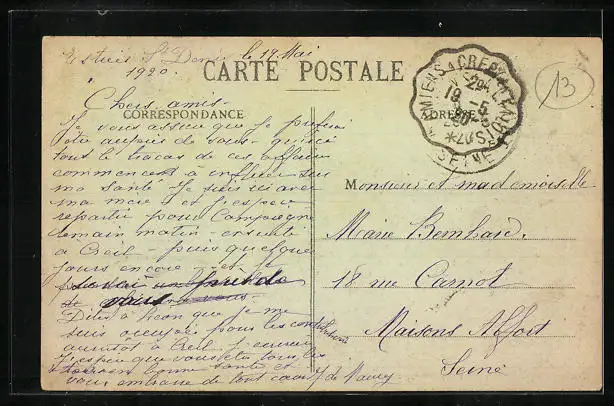 Estrées St Denis le 19 Mai
1920.
CARTE POSTALE
13
Chers amis -
CORRESPONDANCE
ADRESSE
Je vous assure que je préfère
être auprès de vous - qu'ici
tout le tracas de ces affaires
commencent à influer sur
ma santé Je suis ici avec
ma mère et j'espère
repartir pour Compiègne
demain matin - ensuite
à Creil - puis quelques
jours encore - et je
serai près de
vous
Dites à Léon que je me
suis occupé pour les
aussitôt à Creil j'
J'espère que vous êtes tous les
bonne santé et
vous embrasse de tout cœur
Monsieur et mademoiselle
Marie Bernhard.
18 rue Carnot
Maisons Alfort
Seine
AMIENS A CREPY-EN-
19 - 5
20